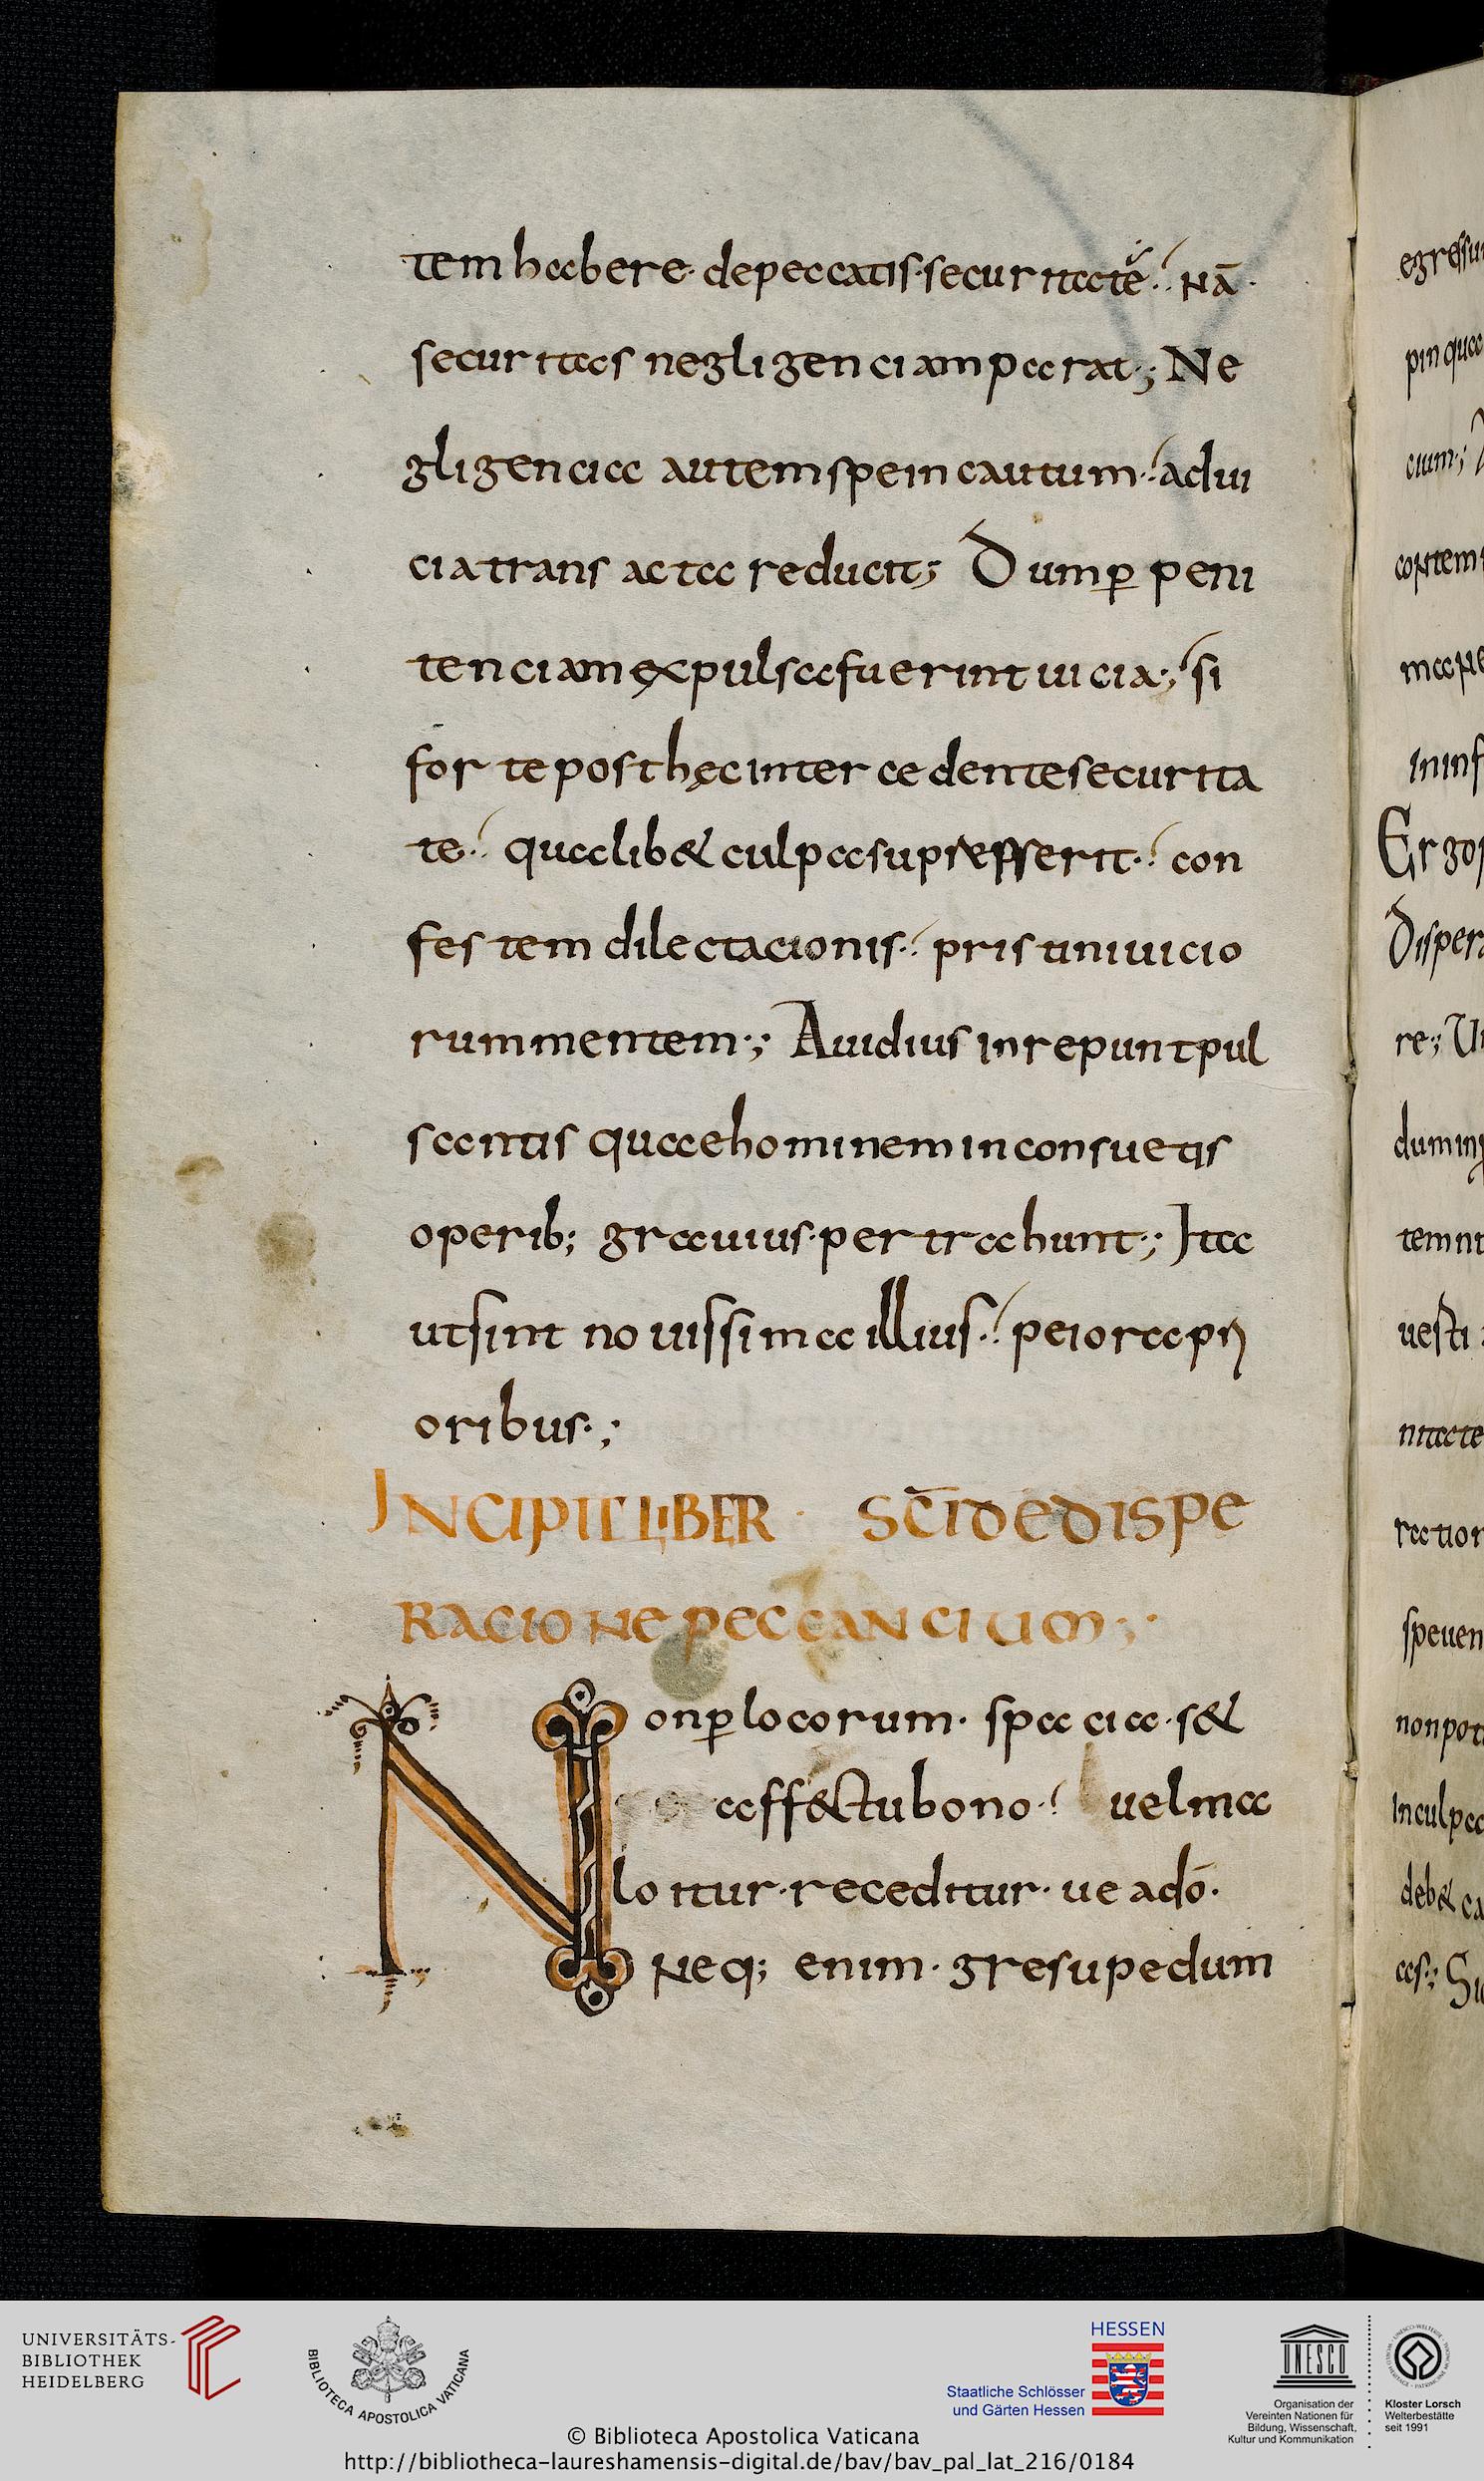 tem habere· depeccatis·securitatē·: Nā·
securitas negligenciam parat·; Ne
gligencia autem spem cautum·: adui
cia trans acta reducit; Dum ꝑ peni
tenciam expulsa fuerint uicia·; si
for te post hęc inter cedente securita
te·: qualib& culpa supresserit·: con
fes tem dilectacionis·: pristini uicio
rum mentem·; Auidius inrepunt pul
santis quae hominem in consuetis
operib; grauius·per trahunt·; Ita
ut sint nouissima illius·: peiora pri
oribus·;
INCIPIT LIBER · SC̄I DE DISPE
RACIONE PECCANCIUM·;·
Non ꝑ locorum· spacia·s&
aff&ctu bono·: uel ma
lo itur·receditur· ue adō·
Neq; enim· gresu pedum
egressu
pin qua
cium·;
in inf
Ergo
Disper
re·; Ut
dum in
uesti
nitate
ration
speuen
non pot
In culpa
deb& ca
as·; Si
UNIVERSITÄTS-
BIBLIOTHEK
HEIDELBERG
BIBLIOTECA APOSTOLICA VATICANA
HESSEN
Staatliche Schlösser
und Gärten Hessen
UNESCO
Organisation der
Vereinten Nationen für
Bildung, Wissenschaft,
Kultur und Kommunikation
Kloster Lorsch
Welterbestätte
seit 1991
© Biblioteca Apostolica Vaticana
http://bibliotheca-laureshamensis-digital.de/bav/bav_pal_lat_216/0184